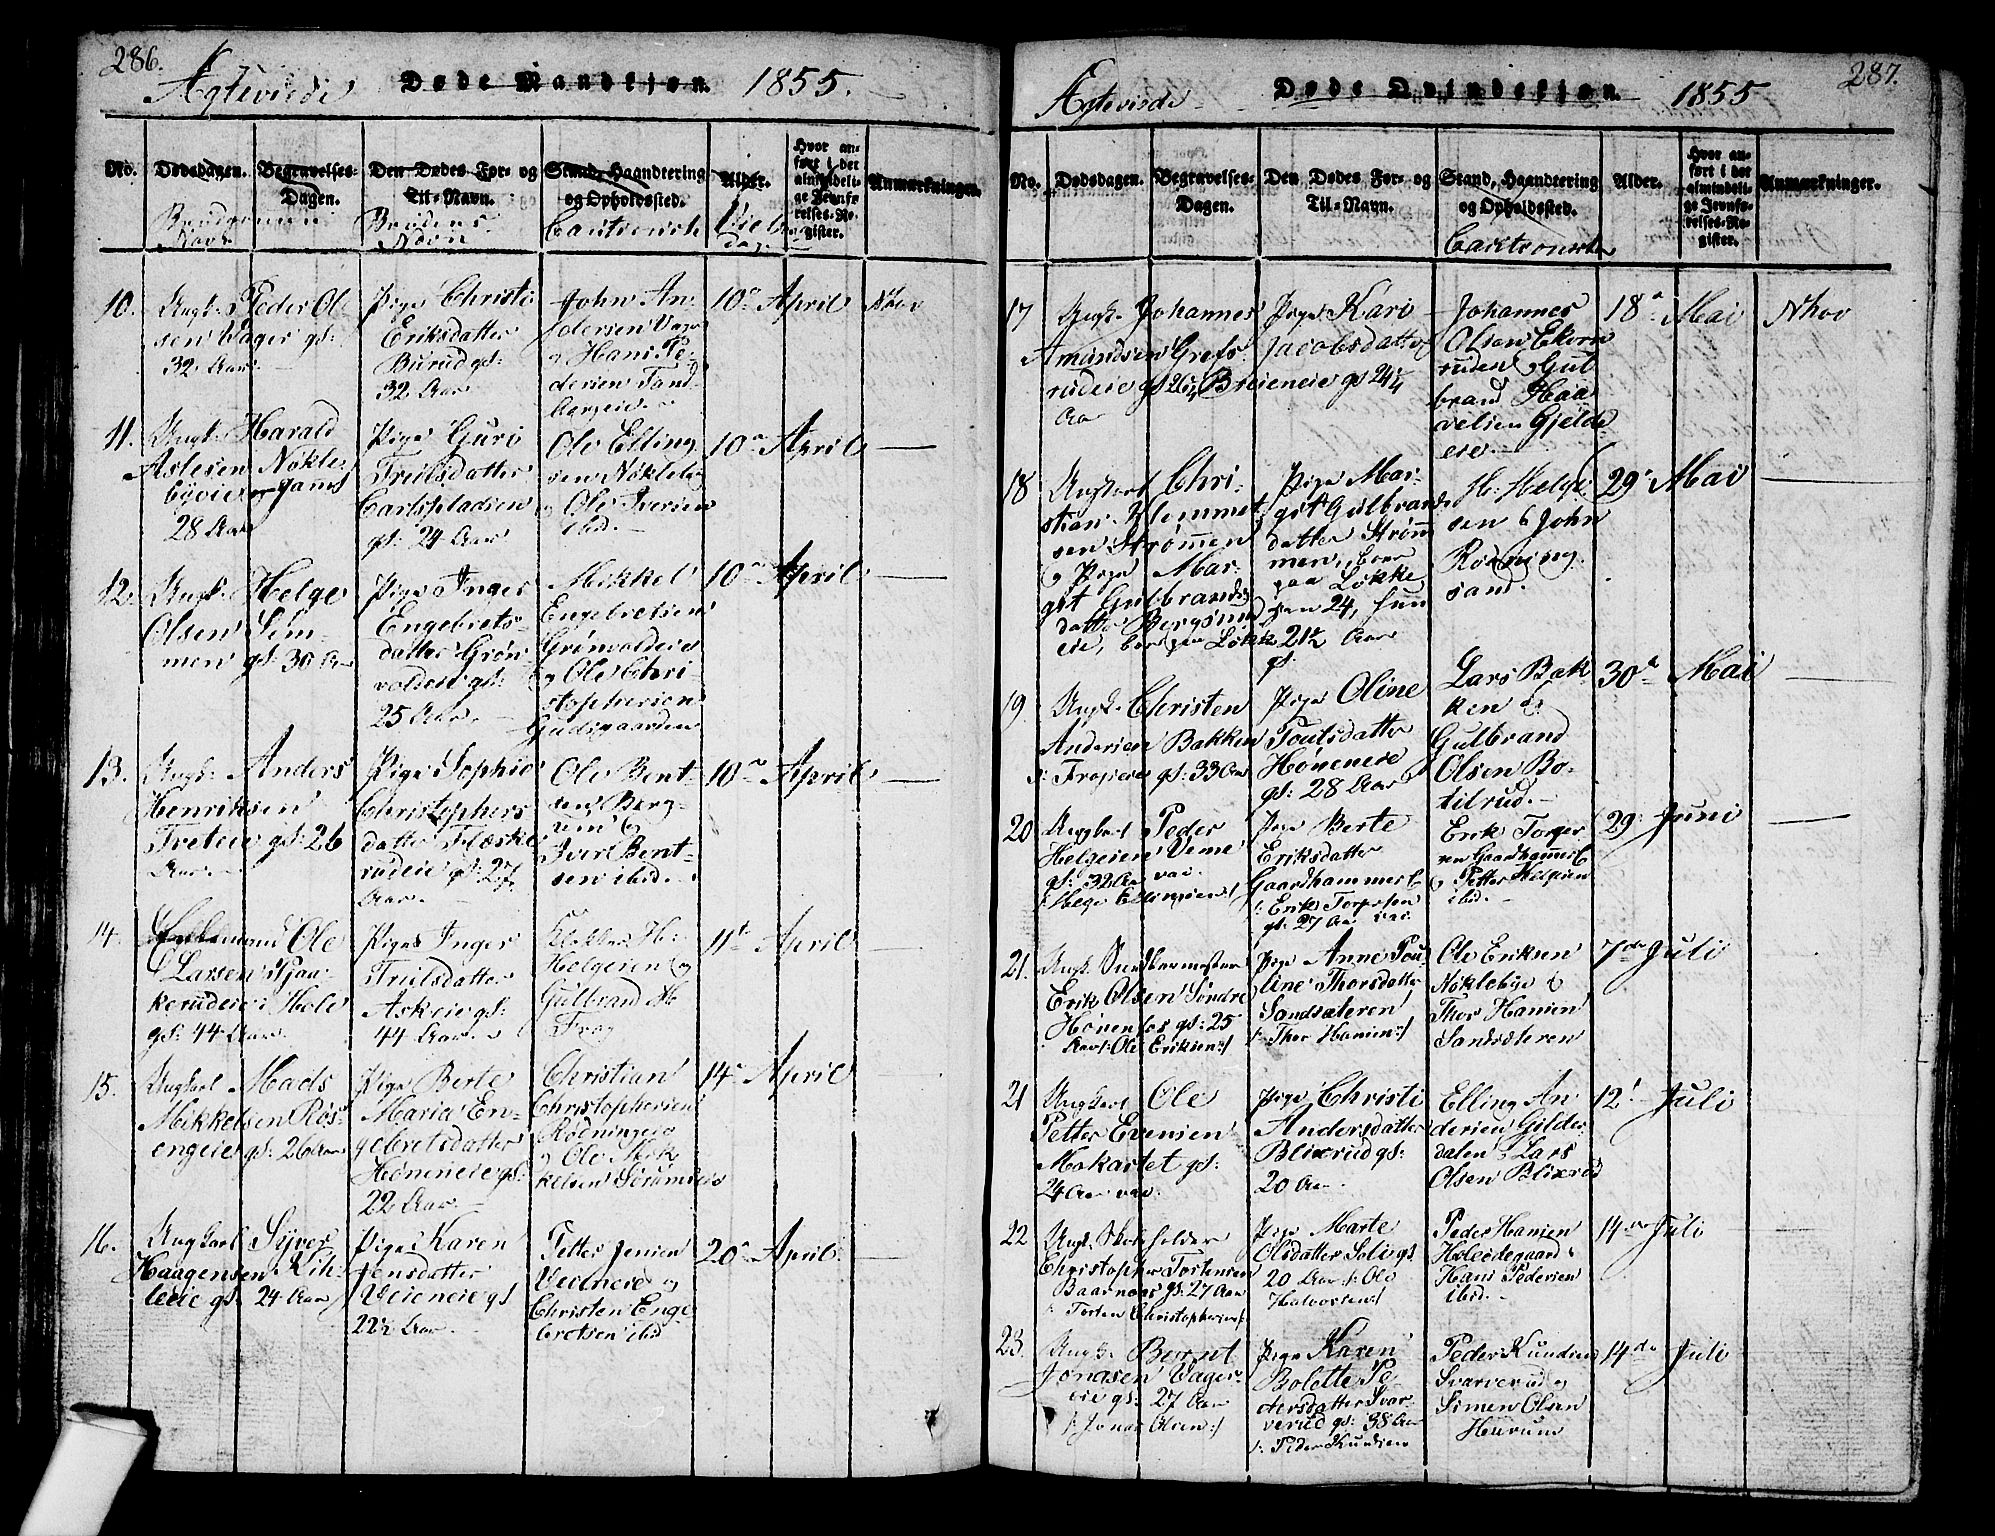 286.
Ægteviede Døde Mandkjøn. 1855.
No. Dødsdagen. Begravelses-Dagen. Den Dødes For- og Til-Navn. Stand, Haandtering og Opholdssted. Alder. Hvor anført i det almindelige Jevnførelses-Register. Anmærkninger.
Brudgommens Navn Brudens Navn Cautionist Viel dag
10. Ungk. Peder Ol
sen Vager gs:
32 Aar.
Pige Christi
Eriksdatter
Burud gs:
32 Aar
John An
dersen Vager
Hans Pe
dersen Tand
bergeie.
10de April Nhov
11. Ungk. Harald
Aslesen Nøkle
byeie gs
28 Aar
Pige Guri
Truls­datter
gs: 24 Aar
Ole Elling
sen Nøkleby
Ole Iversen
ibid.
10de April
12. Ungk. Helge
Olsen Sem
men gs: 30 Aar
Pige Inger
Engebrets
datter Grøn
voldeie gs:
25 Aar.
Mikkel
Engebretsen
Grønvoldeie
Ole Chri
stophersen
Gudsgaarden
10de April
13. Ungk. Anders
Henriksen
Treteie gs: 26
Aar.
Pige Sophie
Christophers
datter Flæske
rudeie gs: 27
Aar.
Ole Bent
sen Berg
Iver Bent
sen ibid.
10de April
14. Ole
Larsen
rudeie i Hole
gs: 44 Aar.
Pige Inger
Trulsdatter
Askeie gs:
44 Aar.
Klokker He
Helgesen
Gulbrand H
Frog
11te April
15. Ungkarl Mads
Mikkelsen Røs
engeie gs: 26 Aar
Pige Berte
Maria En
gebretsdatter
Høneneie gs:
22 Aar.
Christian
Christophersen
Rødningeie
Ole Mik
kelsen
14de April
16. Ungkarl Syver
Haagensen Kih
leeie gs: 24 Aar
Pige Karen
Jensdatter
Veieneie gs
22½ Aar.
Petter Jensen
Veieneie og
Christen Enge
bretsen ibid
20de April
287.
Ægteviede Døde Qvindekjøn. 1855
No. Dødsdagen. Begravelses-Dagen. Den Dødes For- og Til-Navn. Stand, Haandtering og Opholdssted. Alder. Hvor anført i det almindelige Jevnførelses-Register. Anmærkninger.
Cautionister
17 Ungk. Johannes
Amundsen Grefs
rudeie gs
Aar
Pige Kari
Jacobsdatter
Breieneie gs 24¼
Johannes
Olsen Ekorn
ruden Gul
brand Haa
velsen Gjelde
eie.
18de Mai Nhov
18 Ungkarl Chri
stian Klemmet
sen Strømmen
Pige Mar
git Gulbrands
datter
eie, Løkke
Pige Mar
git Gulbrands
datter Strøm
men, boer
paa Løkke
gs 24, hun
21½ Aar
gs.
H. Helge
sen John
Rødning
sand.
29de Mai
19. Ungk. Christen
Andersen Bakken
gs: 33 Aar
Pige Oline
Poulsdatter
Høneneie
gs: 28 Aar
Lars Bak
ken
Gulbrand
Olsen Bo
tilrud.
30te Mai
20 Ungkarl Peder
Helgesen Veme
gs: 32 Aar vac.
Helge Ellingsen
Pige Berte
Eriksdatter
Gaardhammer
Erik Torgersen
gs. 27 Aar vac.
Erik Torger
sen Gaardhammer
Petter Helgesen
ibid.
29. Juni
21. Ungk.
Erik Olsen Søndre
Hønenfos gs: 25
Aar Ole Eriksen
Pige Anne Pou
line Thorsdatter
Sandsæteren
Thor Hansen
Ole Eriksen
Nøklebye
Thor Hansen
Sandsæteren
7de Juli
21 Ungkarl Ole
Petter Evensen
Mokastet gs:
24 Aar vac.
Pige Christi
Andersdatter
Blixrud gs:
20 Aar
Elling An
dersen Gilder
dalen Lars
Olsen Blixrud
12. Juli
22 Ungk. Skoleholder
Christopher Tostensen
Baarnaas gs. 27 Aar
Tosten Christophersen
Pige Marte
Olsdatter Soli gs
20 Aar Ole
Halvorsen
Peder Hansen
Hans Pedersen
ibid.
14de Juli
23. Ungk. Bernt
Jonasen Vager
eie gs: 27 Aar
Jonas Olsen
Pige Karen
Bolette Pe
dersdatter Svar
verud gs: 38 Aar
Peder Knudsen
Peder Knudsen
Svarverud
Simen Olsen
Hurum
14de Juli